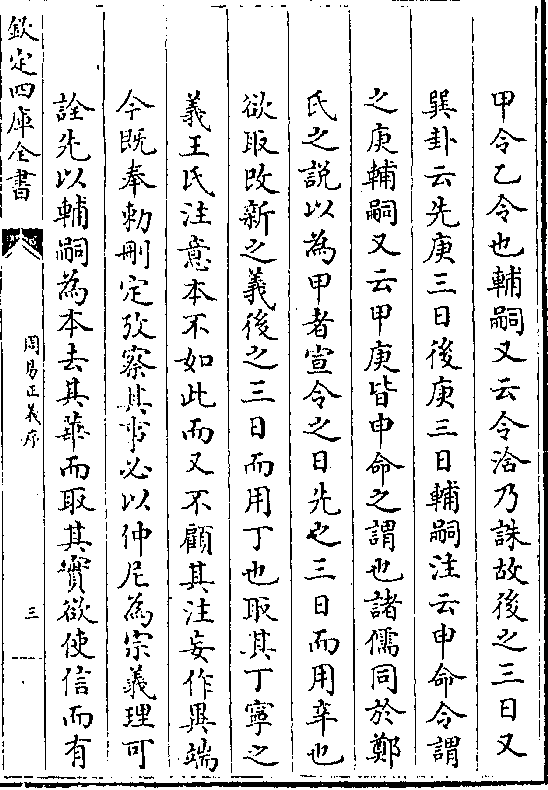 甲令乙令也輔嗣又云令洽乃誅故後之三日又
巽卦云先庚三日後庚三日輔嗣注云申命令謂
之庚輔嗣又云甲庚皆申命之謂也諸儒同於鄭
氏之說以為甲者宣令之日先之三日而用辛也
欲取改新之義後之三日而用丁也取其丁寧之
義王氏注意本不如此而又不顧其注妄作異端
今既奉勅刪定攷察其事必以仲尼為宗義理可
詮先以輔嗣為本去其華而取其實欲使信而有
欽定四庫全書
周易正義序
三